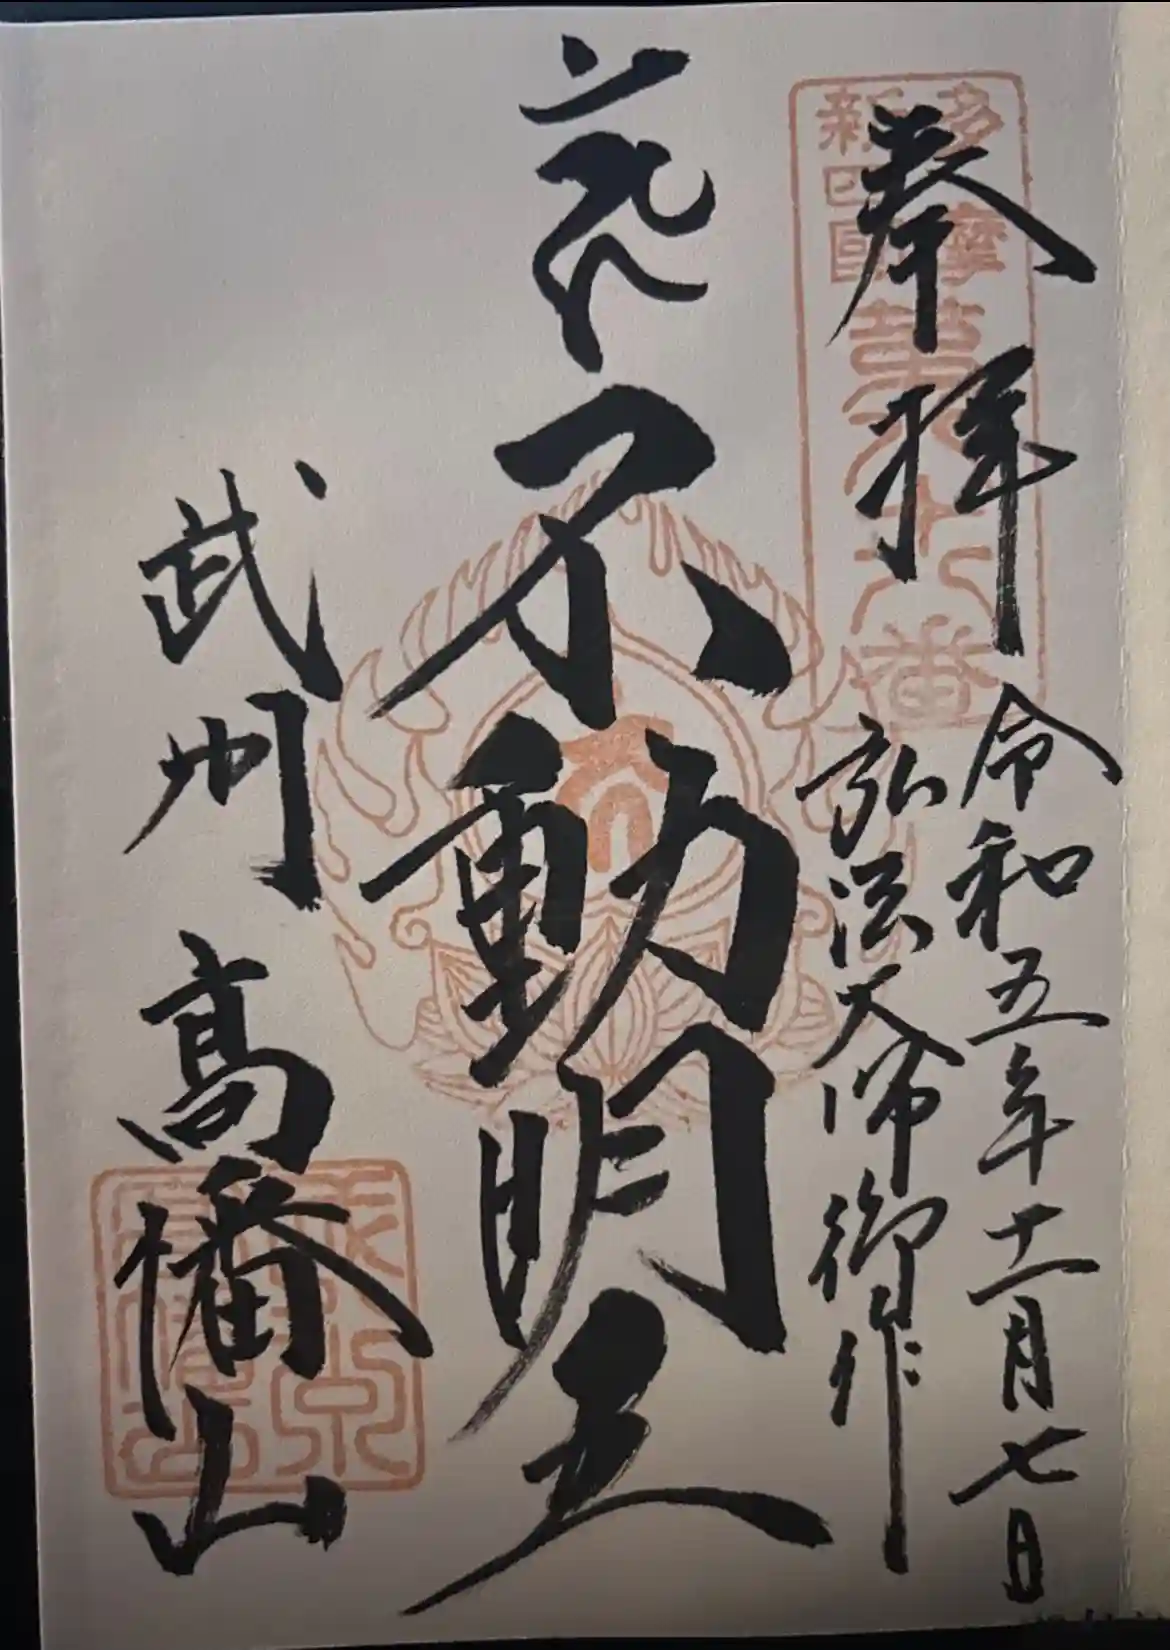 多摩
新四國
第八十八番
奉拝
令和五年十一月七日
弘法大師御作
不動明王
武州 高幡山